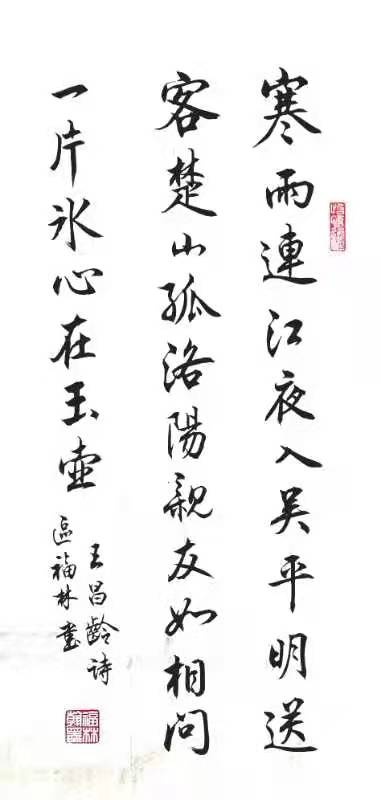 寒雨連江夜入吴平明送
客楚山孤洛陽親友如相问
一片氷心在玉壺
王昌齡诗
區福林書
福林
翰墨